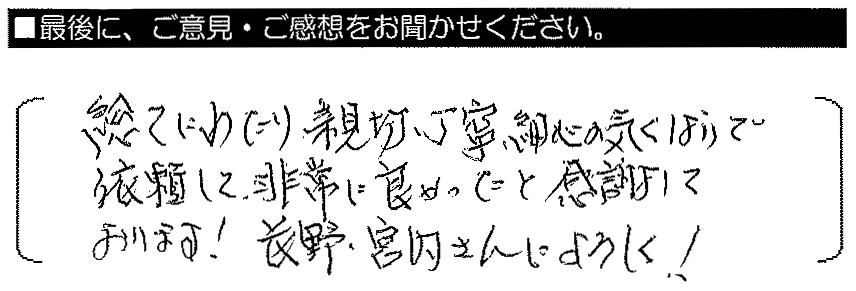 ■最後に、ご意見・ご感想をお聞かせください。
総てにわたり親切、丁寧、細心の気くばりで
依頼して、非常に良かったと感謝して
おります！長野・宮内さんによろしく！